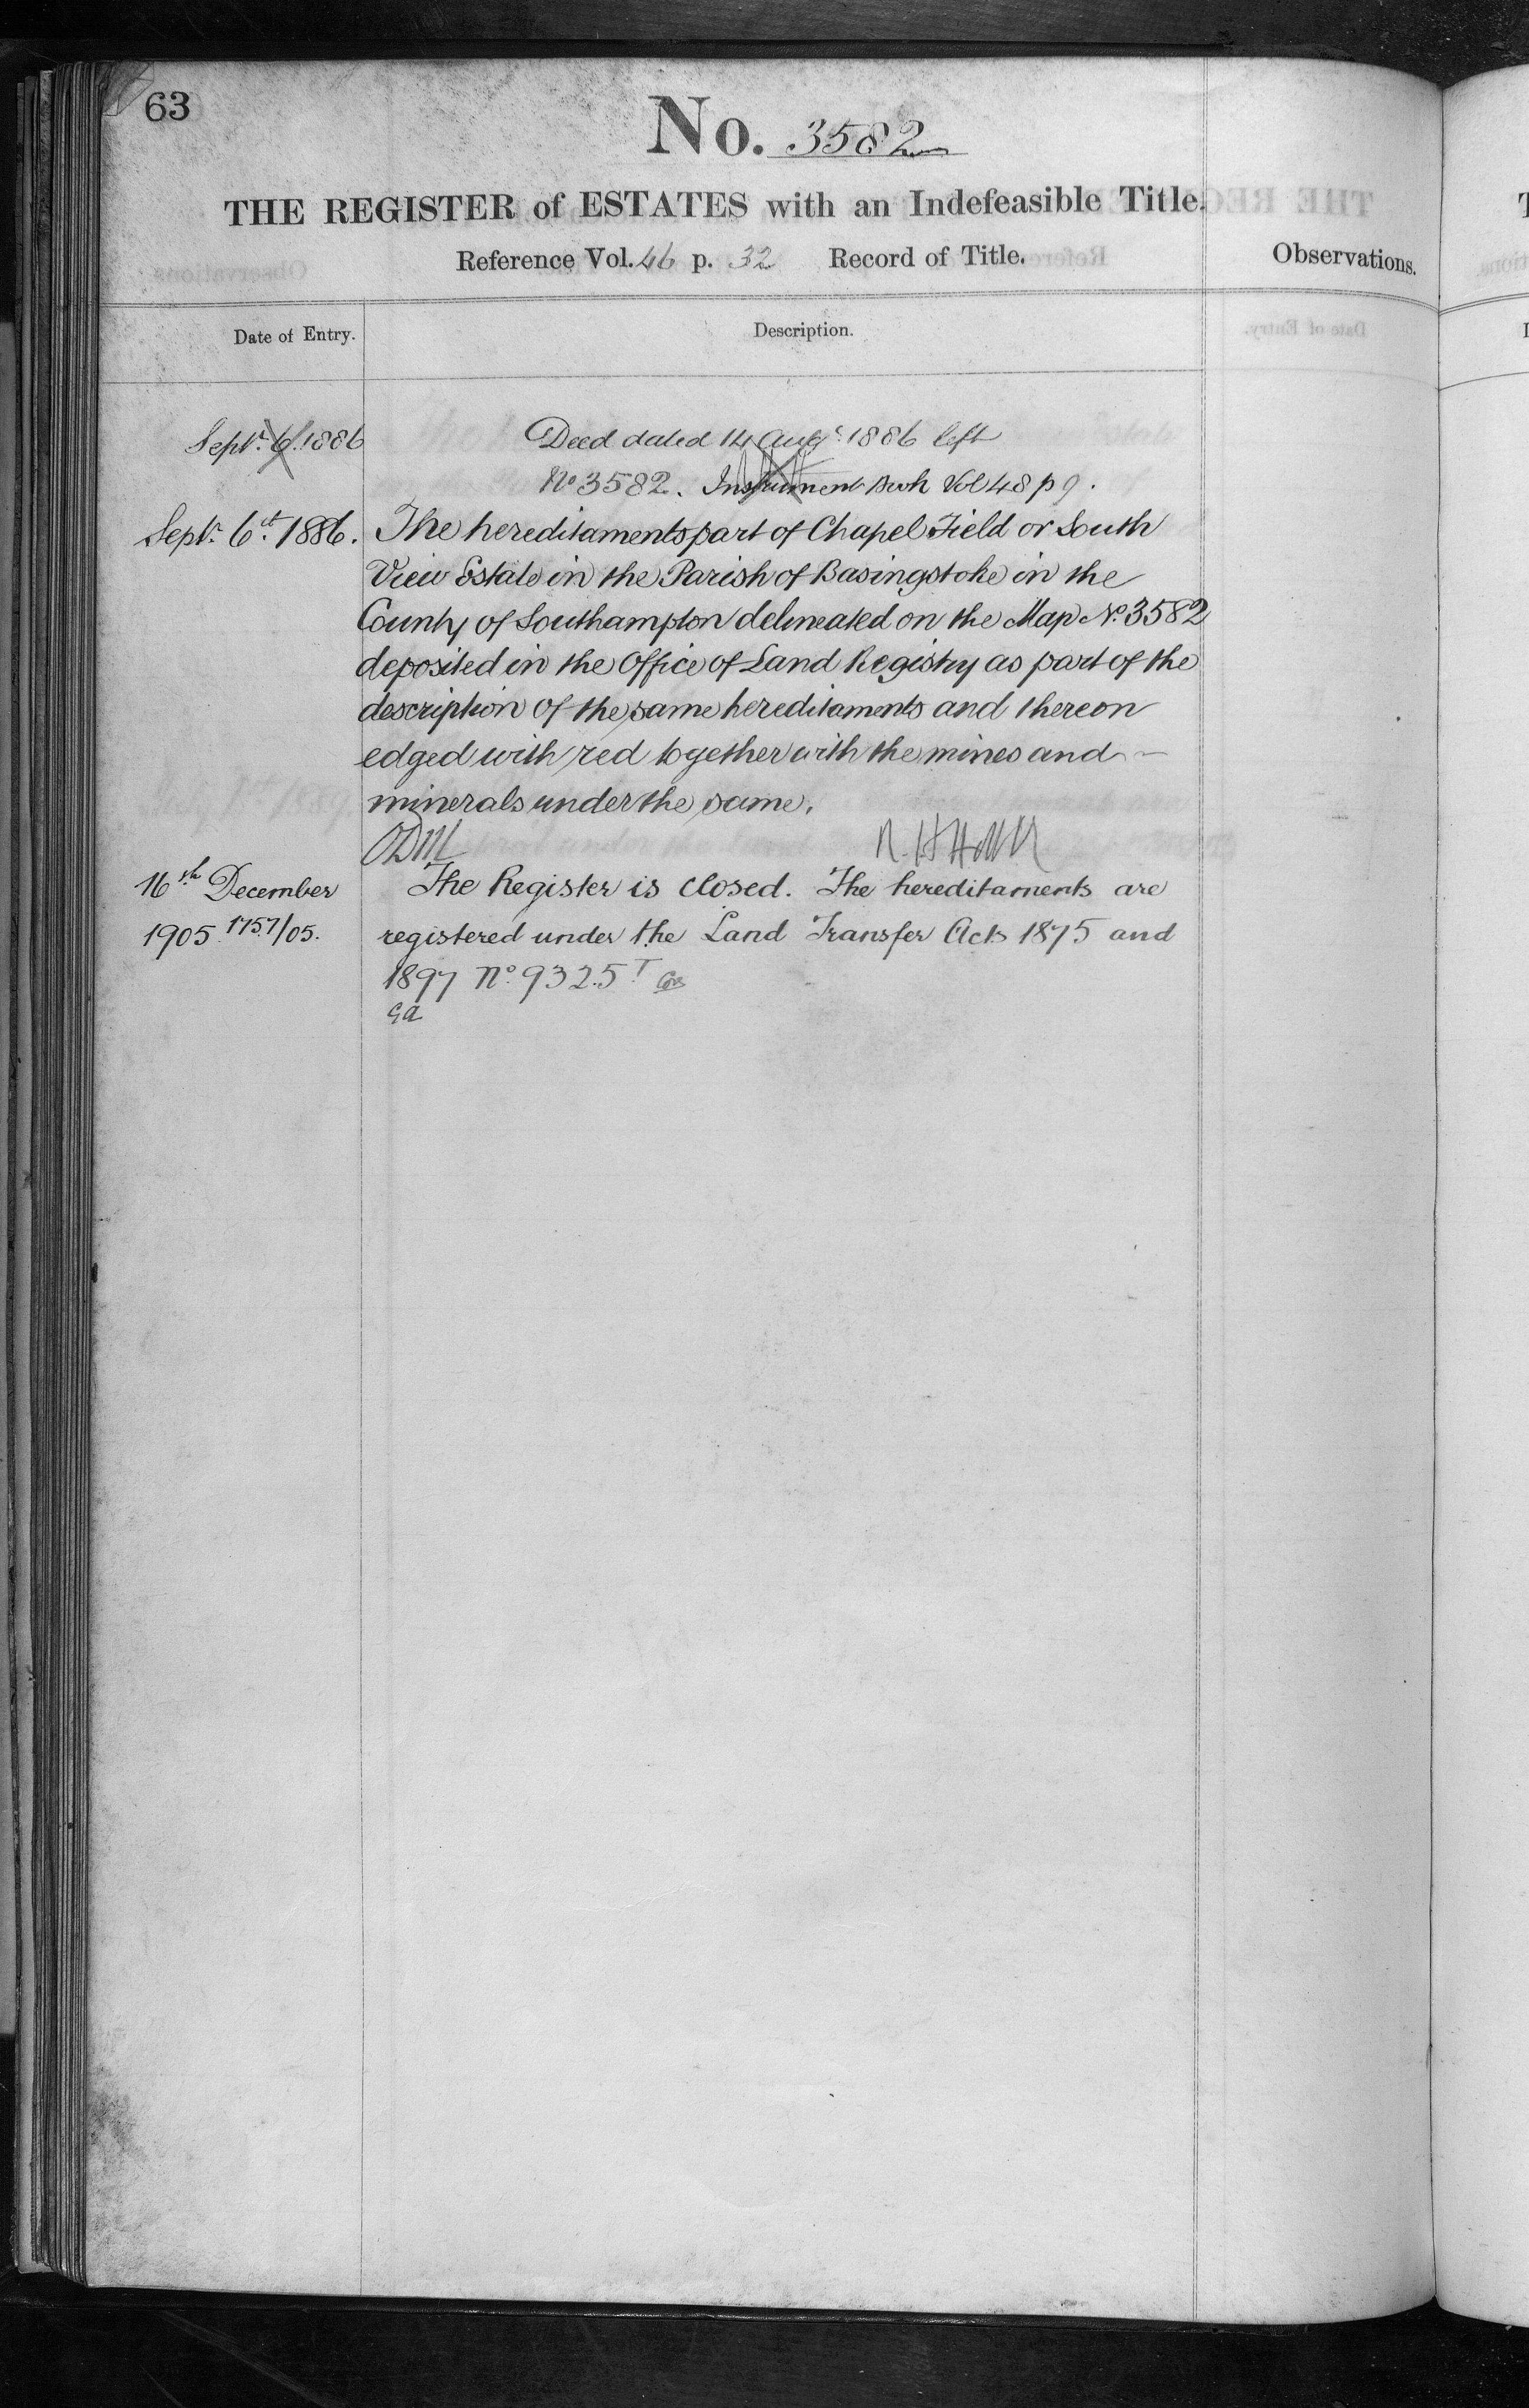 63
No. 3582
THE REGISTER of ESTATES with an Indefeasible Title.
Reference Vol. 46 p. 32 Record of Title.
Observations.
Date of Entry.
Description.
Sept. 6. 1886
Deed dated 14 Augt. 1886 left
No 3582. Instrument Book Vol 48 p 9.
Septr. 6th 1886.
The hereditaments part of Chapel Field or South
View Estate in the Parish of Basingstoke in the
County of Southampton delineated on the Map No. 3582
deposited in the Office of Land Registry as part of the
description of the same hereditaments and thereon
edged with red together with the mines and
minerals under the same.
16th December
1905 1757/05.
The Register is closed. The hereditaments are
registered under the Land Transfer Acts 1875 and
1897 No. 9325